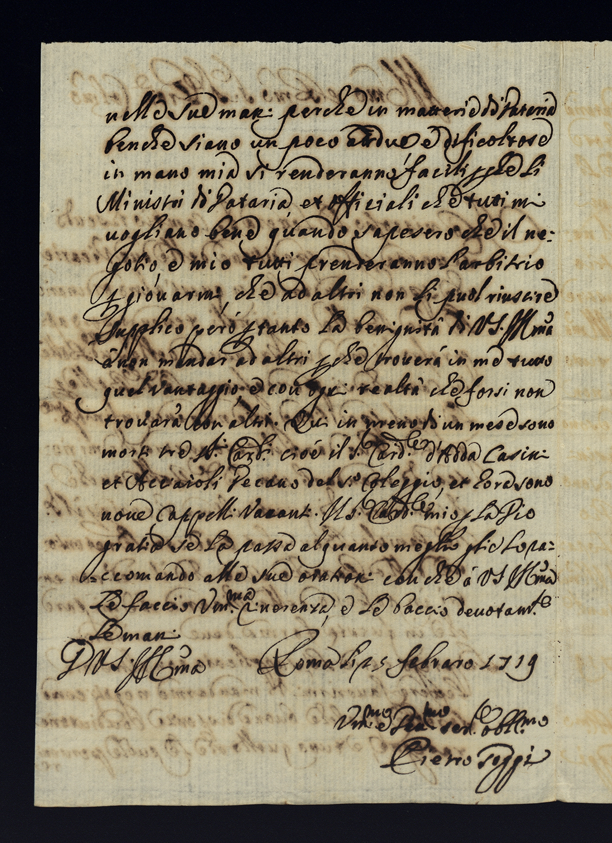 nelle sue man: perche in materie di Dataria
benche siano un poco ardue e dificoltose
in mano mia si renderanno facili p che li
Ministri di Dataria et officiali che tuti mi
vogliano bene quando sapesero che il ne-
gotio e mio tutti prenderanno l'arbitrio
p giovarmi, che ad altri non li puol riuscire
Supplico però p tanto la benignità di VS. Ill:ma
à non mandar ad altri p che troverà in me tutto
quel vantaggio e con ogni realtà che forsi non
trovarà con altri. Qui in meno di un mese sono
morti tre Sri. Card:li cioè il S.r Card:le d'Adda Casini
et Acciaioli Decano del S. Coleggio, et hora sono
nove Cappelli Vacanti. Il S. Card:le mio p la Dio
gratia se la passa alquanto meglio, glie lo ra-
ccomando alle sue oration: con che à VS Ill:ma
Le faccio Um:ma riverenza, e le baccio devotam:te
Le man:
D VS. Ill:ma Roma li 25 febraro 1719
Um:mo e Dev:mo ser:e obl:mo
Pietro Poggi